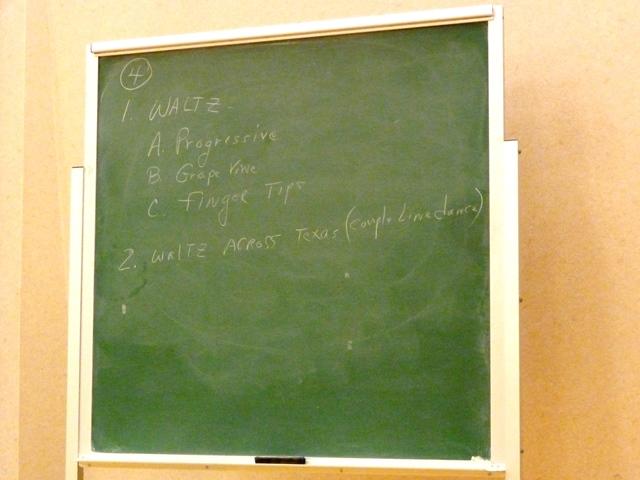 4
1. WALTZ -
A. Progressive
B. Grape Vine
C. Finger Tips
2. WALTZ ACROSS Texas (couple Line dance)